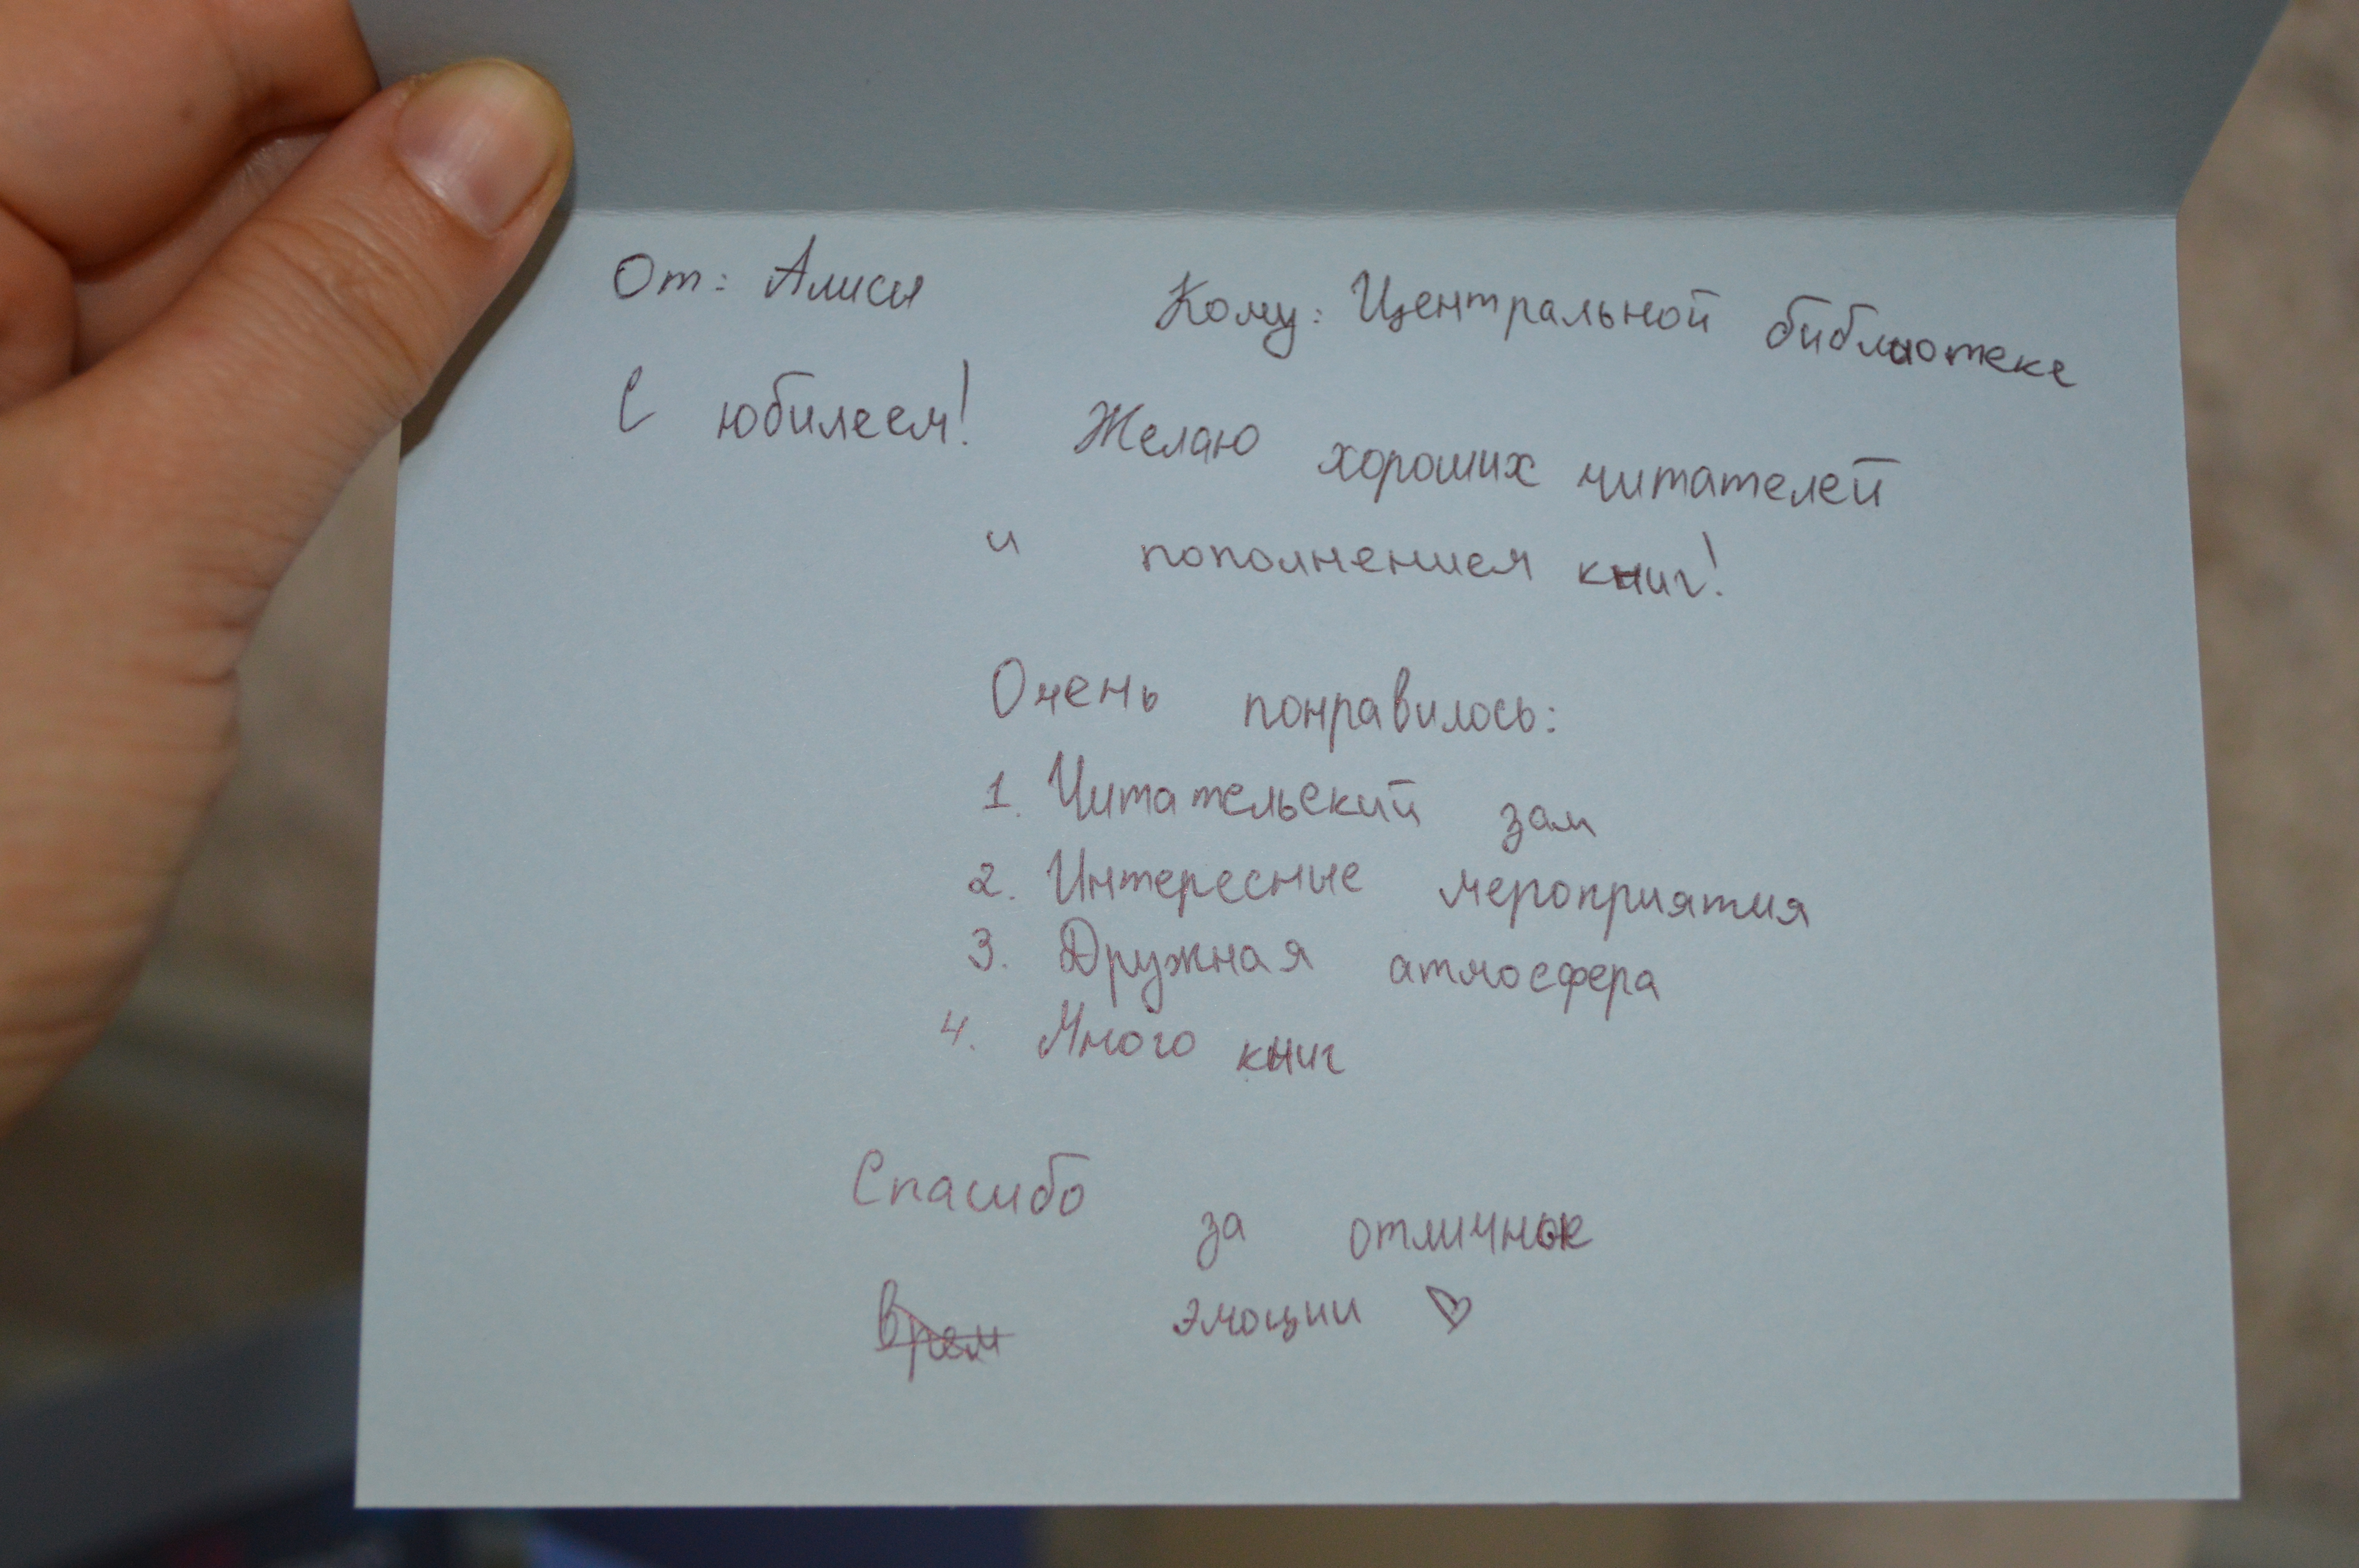 От: Алисы Кому: Центральной библиотеке
С юбилеем! Желаю хороших читателей
и пополнением книг!
Очень понравилось:
1. Читательский зал
2. Интересные мероприятия
3. Дружная атмосфера
4. Много книг
Спасибо за отличные
эмоции ♡